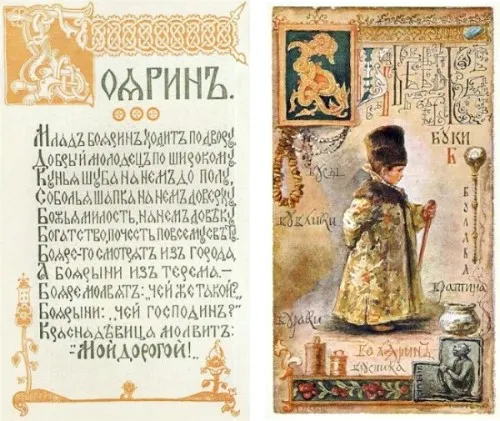 БОЯРИНЪ.
Младъ бояринъ ходитъ по двору,
Добрый молодецъ по широкому,
Кунья шуба на немъ до полу,
Соболья шапка на немъ до верху,
Божья милость, на немъ до вѣку,
Богатство, почесть по всему свѣту.
Бояре-то смотрятъ изъ города
А боярыни изъ терема.—
Бояре молвятъ: „чей же такой?"
Боярыни: „чей господинъ?"
Красна дѣвица молвитъ:
„Мой дорогой!..
БУКИ
Б
БУСЫ
БУБЛИКИ
БУЛАВА
БРАТИНА
БУРАКИ